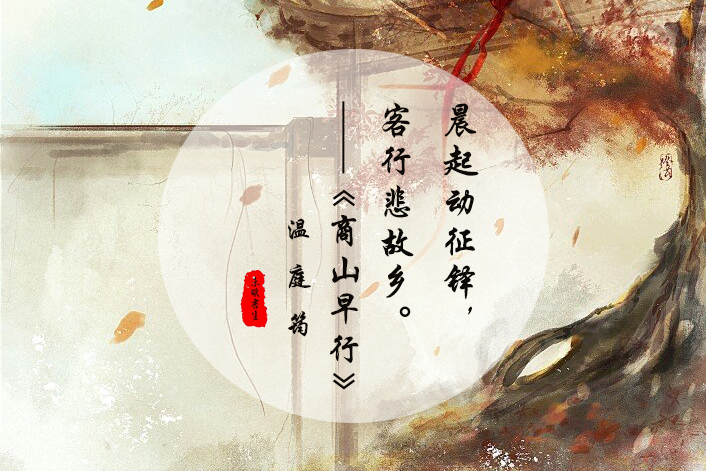 晨起动征铎，
客行悲故乡。
——《商山早行》
温庭筠